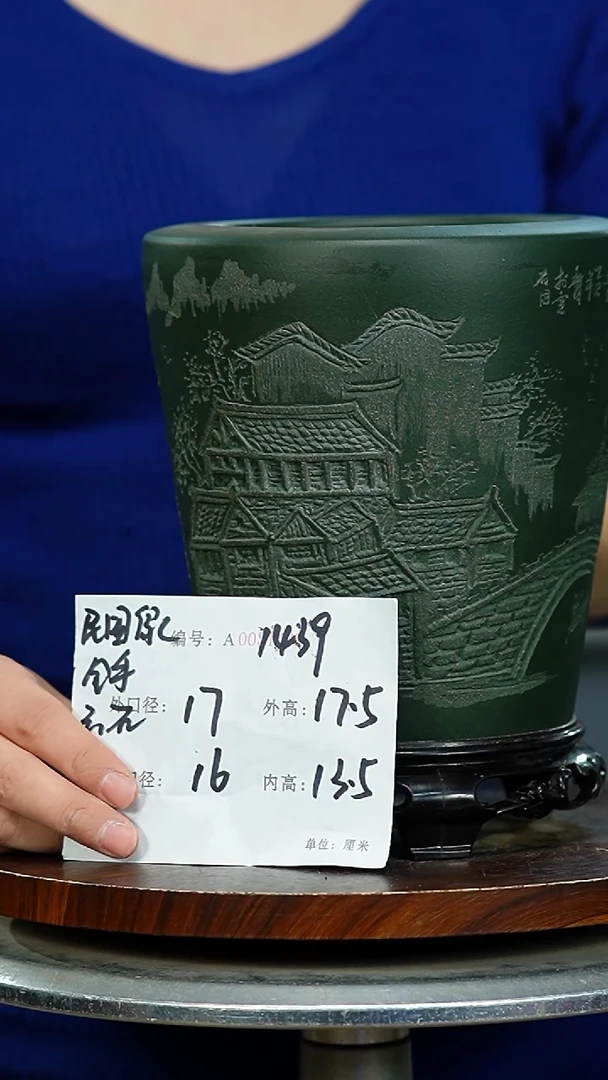 民国绿泥 编号: A00 1439
全手
外口径: 17 外高: 17.5
刻花
口径: 16 内高: 13.5
单位: 厘米